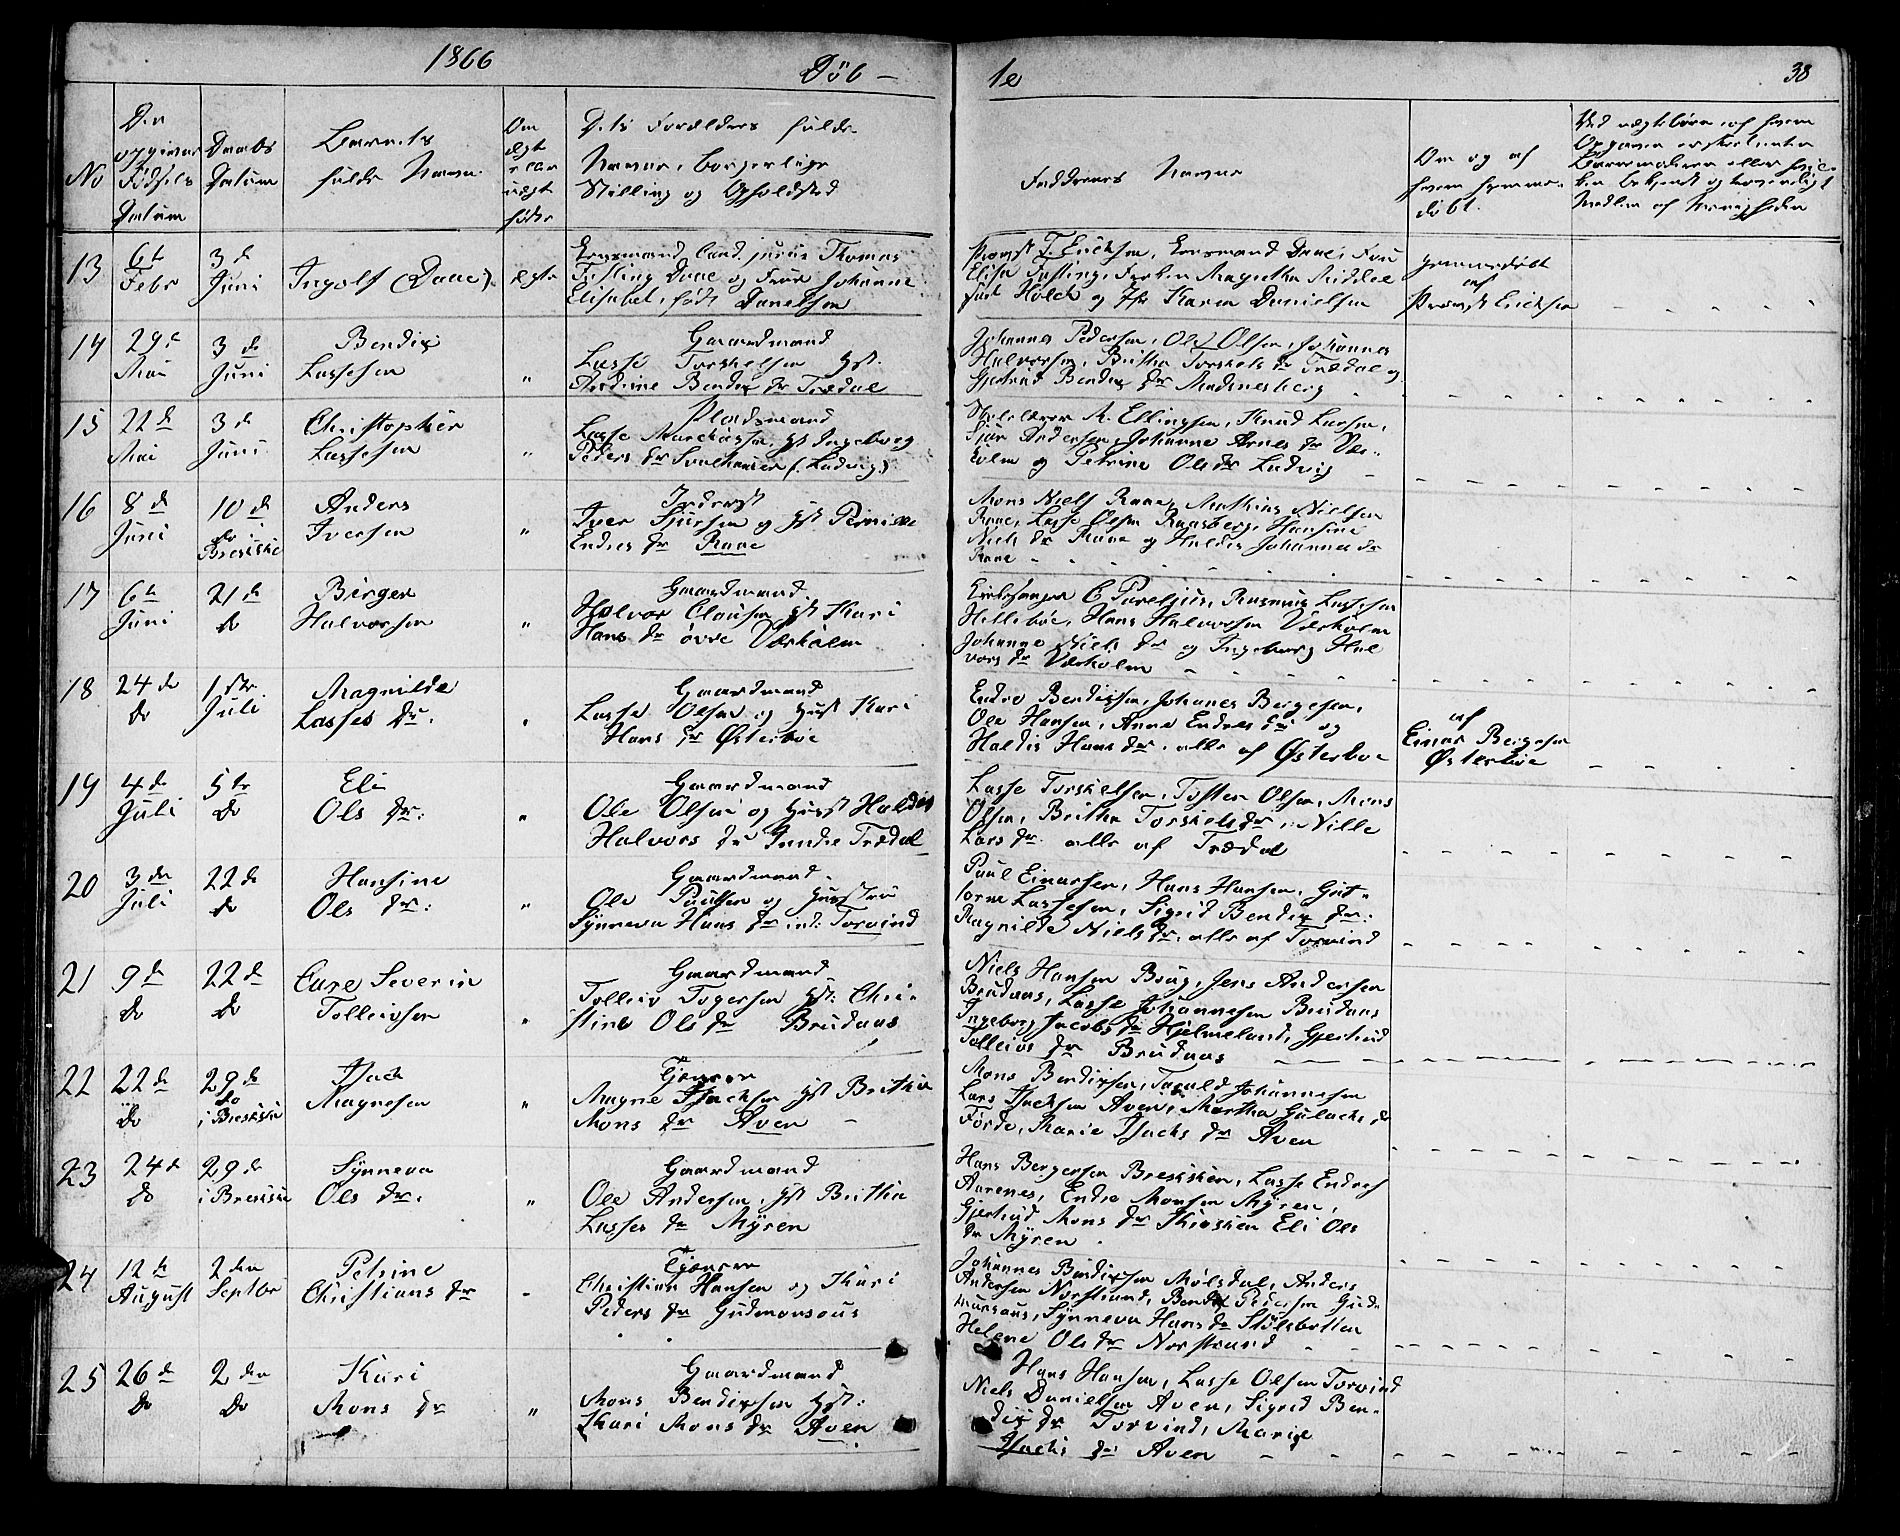 1866
Døb-
te
38
No
Den opgivne Fødsels Datum
Daabs Datum
Barnets fulde Navn.
Om ægt eller uægt født
Dets Forældres fulde Navne, borgerlige Stilling og Opholdsted
Faddernes Navne
Om og af hvem hjemmedøbt.
13
6te Febr
3de Juni
Ingolf (Daae).
ægte
Lensmand Cand. juris Thomas
Daae og Frue Johanne
Elisabet, født Danielsen
Provst Ericksen, Lensmand Daae, Fru
født Holck og Jfr Karen Danielsen
hjemmedøbt
af
Provst Ericksen
14
29de Mai
3de Juni
Bendix
Lassesen
"
Gaardmand
Lasse Torskelsen Hst.
Andrine Bendix dr Trædal
Johannes Pedersen, Ole Olsen, Johannes
Halvorsen, Britha Torskels dr Trædal og
Gjertrud Bendix dr
15
22de Mai
3de Juni
Christopher
Lassesen
"
Pladsmand
Lasse Marcussen, Hst Ingeborg
Peders dr
Skolelærer A. Ellingsen, Knud Larsen,
Sjur Andersen, Johanne Arnes dr Vær-
holm og Petrine Ols dr Ladvig
16
8de Juni
10de do i Brekke
Anders
Iversen
"
Inderst
Iver Sjursen og Hst Pernille
Endres dr Raae
Mons Niels Raae, Mathias Nielsen
Raae, Lasse Olsen Hansine
Niels dr Raae og Huldis Johannes dr
Raae
17
6te Juni
21de do
Birger
Halvorsen
"
Gaardmand
Halvor Clausen Hst Kari
Hans dr øvre Værholm
Kirkesanger C Parelius, Rasmus Lassesen
Hellebøe, Hans Halvorsen Værholm
Johanne Niels dr og Ingeborg Hal
vors dr Værholm
18
24de do
1ste Juli
Magnilde
Lasses dr.
"
Gaardmand
Lasse Olsen og Hust Kari
Hans dr Østerbøe
Endre Bendixsen, Johanes Bergesen,
Ole Hansen, Anne Endres dr og
Haldis Hans dr. alle af Østerboe
af
Einar Bergesen
Østerbøe
19
4de Juli
5te do
Eli
Ols dr.
"
Gaardmand
Ole Olsen og Hust Haldis
Halvors dr Indre Trædal
Lasse Torskelsen, Tosten Olsen, Mons
Olsen, Britha Torskels dr, Nille
Lars dr. alle af Trædal
20
3de Juli
22de do
Hansine
Ols dr.
"
Gaardmand.
Ole Paulsen og Hustru
Synneva Hans dr ind: Torvind
Paul Einarsen, Hans Hansen, Gut-
torm Lassesen, Sigrid Bendix dr.
Ragnilde Niels dr. alle af Torvind
21
9de do
22de do
Severin
Tolleivsen
"
Gaardmand
Tolleiv Togersen Hst: Chri-
stine Ols dr Brudaas
Niels Hansen Jens Andersen
Brudaas, Lasse Johannesen Brudaas
Ingeborg Jacobs dr Hjelmeland, Gjertrud
Tolleivs dr Brudaas
22
22de do
29de do i Brekke
Isack
Magnesen
"
Tjenere
Magne Isacksen Hst Britha
Mons dr Aven
Mons Bendixsen, Johannesen
Lars Isacksen Aven, Martha Gulacks dr
Førde, Marie Isacks dr Aven
23
24de do
29de i Brekke
Synneva
Ols dr.
"
Gaardmand
Ole Andersen, Hst Britha
Lasses dr Myren
Hans Bergesen Lasse Endres
Aarenes, Endre Monsen Myren,
Gjertrud Mons dr Eli Ols
dr Myren.
24
12te August
2den Septbr
Petrine
Christians dr
Tjenere
Christian Hansen og Kari
Peders dr
Johannes Bendixsen Anders
Andersen Norstrand, Bendix Pedersen
Synneva Hans dr
Helene Ols dr Norstrand
25
26de do
2den do
Kari
Mons dr
"
Gaardmand
Mons Bendixsen Hst:
Kari Mons dr Aven
Hans Hansen, Lasse Olsen Torvind
Niels Danielsen Aven, Sigrid Ben-
dix dr Torvind, Marie
Isacks dr Aven